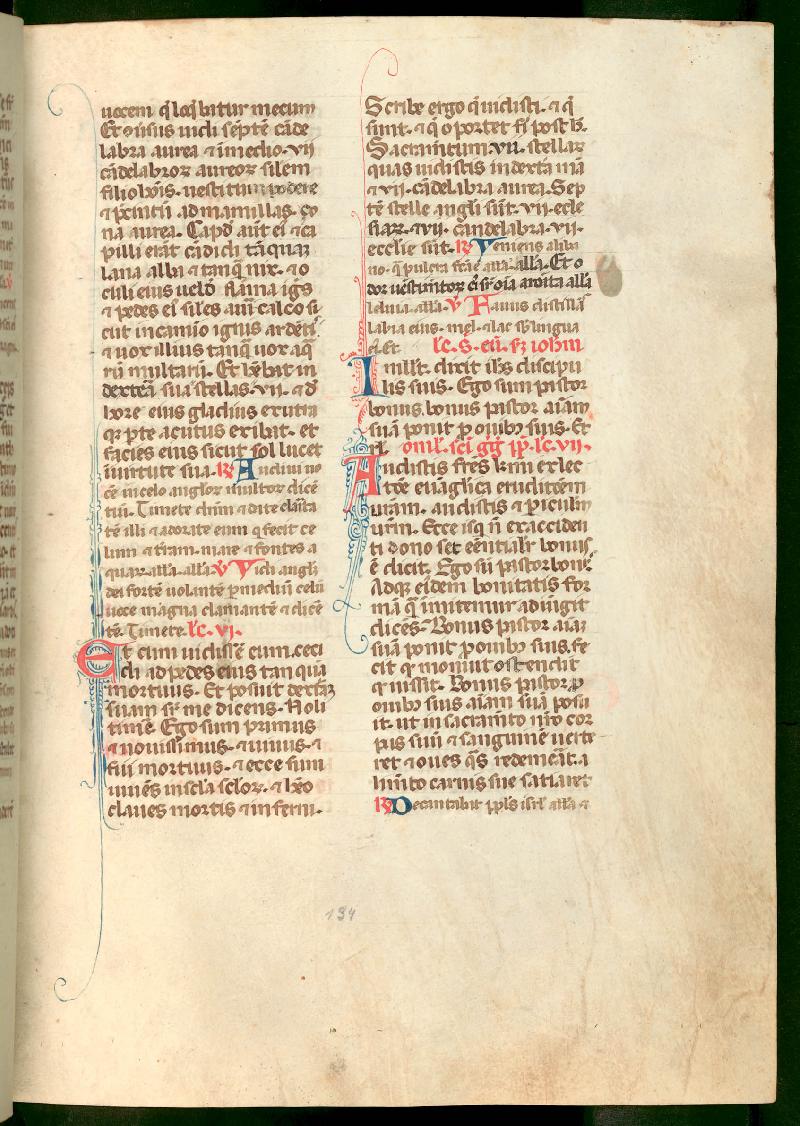 uocem q̄ loq̄batur mecum
Et ɔuersus uidi septē cāde
labra aurea ⁊ i medio .vii
cādelabroꝝ aureoꝝ silem
filio hoīs. uestitum podere
⁊ p̄cinctū ad mamillas. ço
na aurea. Capd̛ aut̄ ei ⁊ ca
pilli erāt cādidi tāquaꝫ
lana alba ⁊ tanq̄ nix. ⁊ o
culi eius uelđ flāma igīs
⁊ pedes ei siles auri calco si
cut in camīo ignis ardēti.
⁊ uox illius tanq̄ uox aq̄
rū multarū. Et hēbat in
dextera sua stellas .vii. ⁊ đ
hore eius gladius exutra
qꝫ pte acutus exibat. et
facies eius sicut sol lucet
ī uirtute sua. ℟ Audiui uo
cē in celo angloꝝ multoꝝ dicē
tiū. Timete dnm ⁊ date clarita
tē illi ⁊ adorate eum q fecit ce
lum ⁊ terram. mare ⁊ fontes a
quaꝝ. alla. alla ℣ Vidi angli
dei fortē uolantē p mediū celū
uoce magna clamantē ⁊ dicē
tē. Timete. lc̄. vi.
Et cum uidissē eum. ceci
di ad pedes eius tan quā
mortuus. Et posuit dextaꝫ
suam sr̄ me dicens. Noli
timē. Ego sum primus
⁊ nouissimus. ⁊ uiuus. ⁊
fui mortuus. ⁊ ecce sum
uiuēs in scl̄a scloꝝ. ⁊ hēo
claues mortis ⁊ inferni.
Scribe ergo q̄ uidisti. ⁊ q̄
sunt. ⁊ q̄ oportet fi post h̄.
Sacramtum .vii. stellaꝝ
quas uidistis in dextā mā
⁊ vii. cādelabra aurea. Sep
tē stelle angli sūt. vii. ecle
siaꝝ. ⁊ vii. candelabra. vii.
ecclie sūt. ℟ Veniens a liba
no. q̄ pulcra scāe alla. alla. Et o
dor uestimtoꝝ ei sr̄ oīa aroīta alla
leluia. alla. ℣ Fauus distilla
labia eius. mel. ⁊ lac sb̄ lingua
ei. Et lc̄. S. eū. ꝫ iohm
In illt. dicit ihs discipu
lis suis. Ego sum pastor
bonus. bonus pastor aiam
suā ponit p ouibꝫ suis. Et
rl. omł. scī grg̃ pp̄. lc̄. vii.
Audistis frēs kmi ex lec
tōe euāglica eruditōem
uram. audistis ⁊ piculm
urm. Ecce isq̄ n̄ ex acciden
ti dono set eēntialr bonus
ē dicit. Ego sū pastor bonꝰ
Adqꝫ eidem bonitatis for
mā q̄ imitemur adiūgit
dicēs. Bonus pastor aiaꝫ
suā ponit p ouibꝫ suis. fe
cit q̄ monuit ostendit
q̄ iussit. Bonus pastor p
ouibꝫ suis aiam suā posu
it. ut in sacramto nro cor
pus suū ⁊ sanguinē uerte
ret ⁊ oues q̄s redemerat. a
limto carnis sue satiaret
℟ Decantabat ppls isrl̄ alla ⁊
134